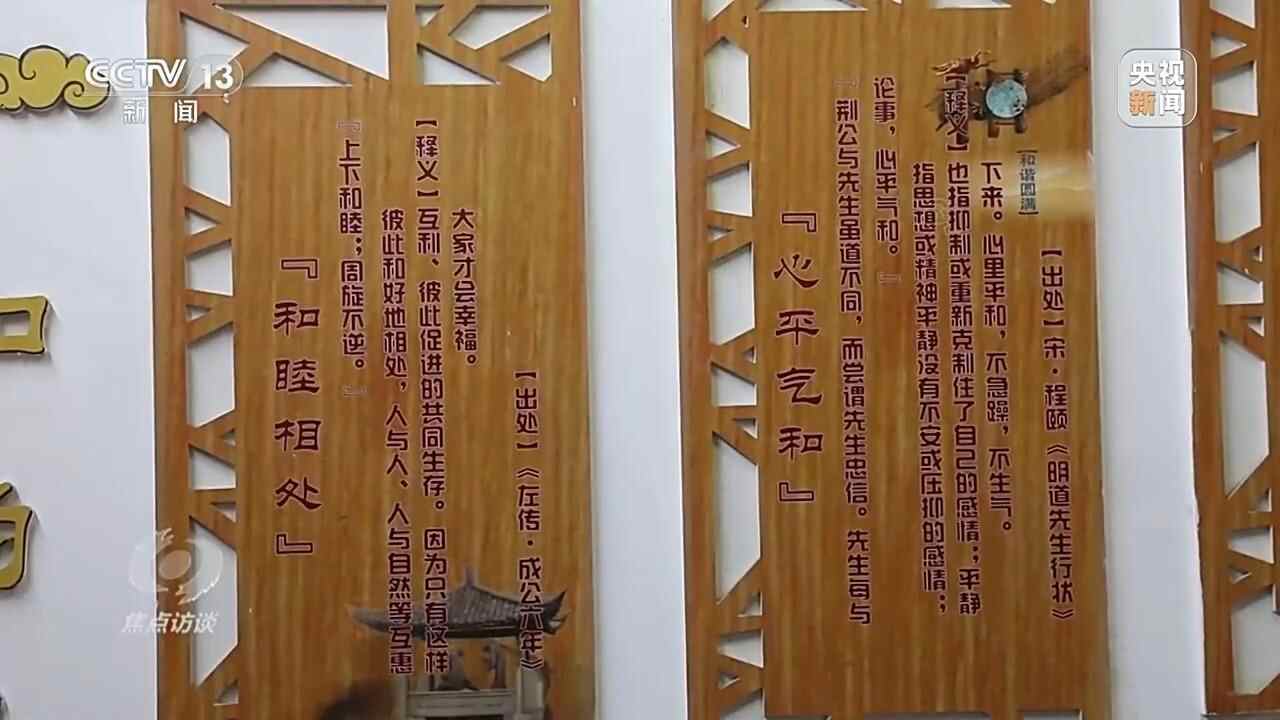 CCTV 13
新闻
央视
新闻
『和睦相处』
『上下和睦；周旋不逆。』
彼此和好地相处，人与人、人与自然等互惠
【释义】互利、彼此促进的共同生存。因为只有这样
大家才会幸福。
【出处】《左传·成公六年》
『心平气和』
『荆公与先生虽道不同，而尝谓先生忠信。先生每与
论事，心平气和。』
指思想或精神平静没有不安或压抑的感情；
【释义】也指抑制或重新克制住了自己的感情；平静
下来。心里平和，不急躁，不生气。
【和谐圆满】
【出处】宋·程颐《明道先生行状》
焦点访谈